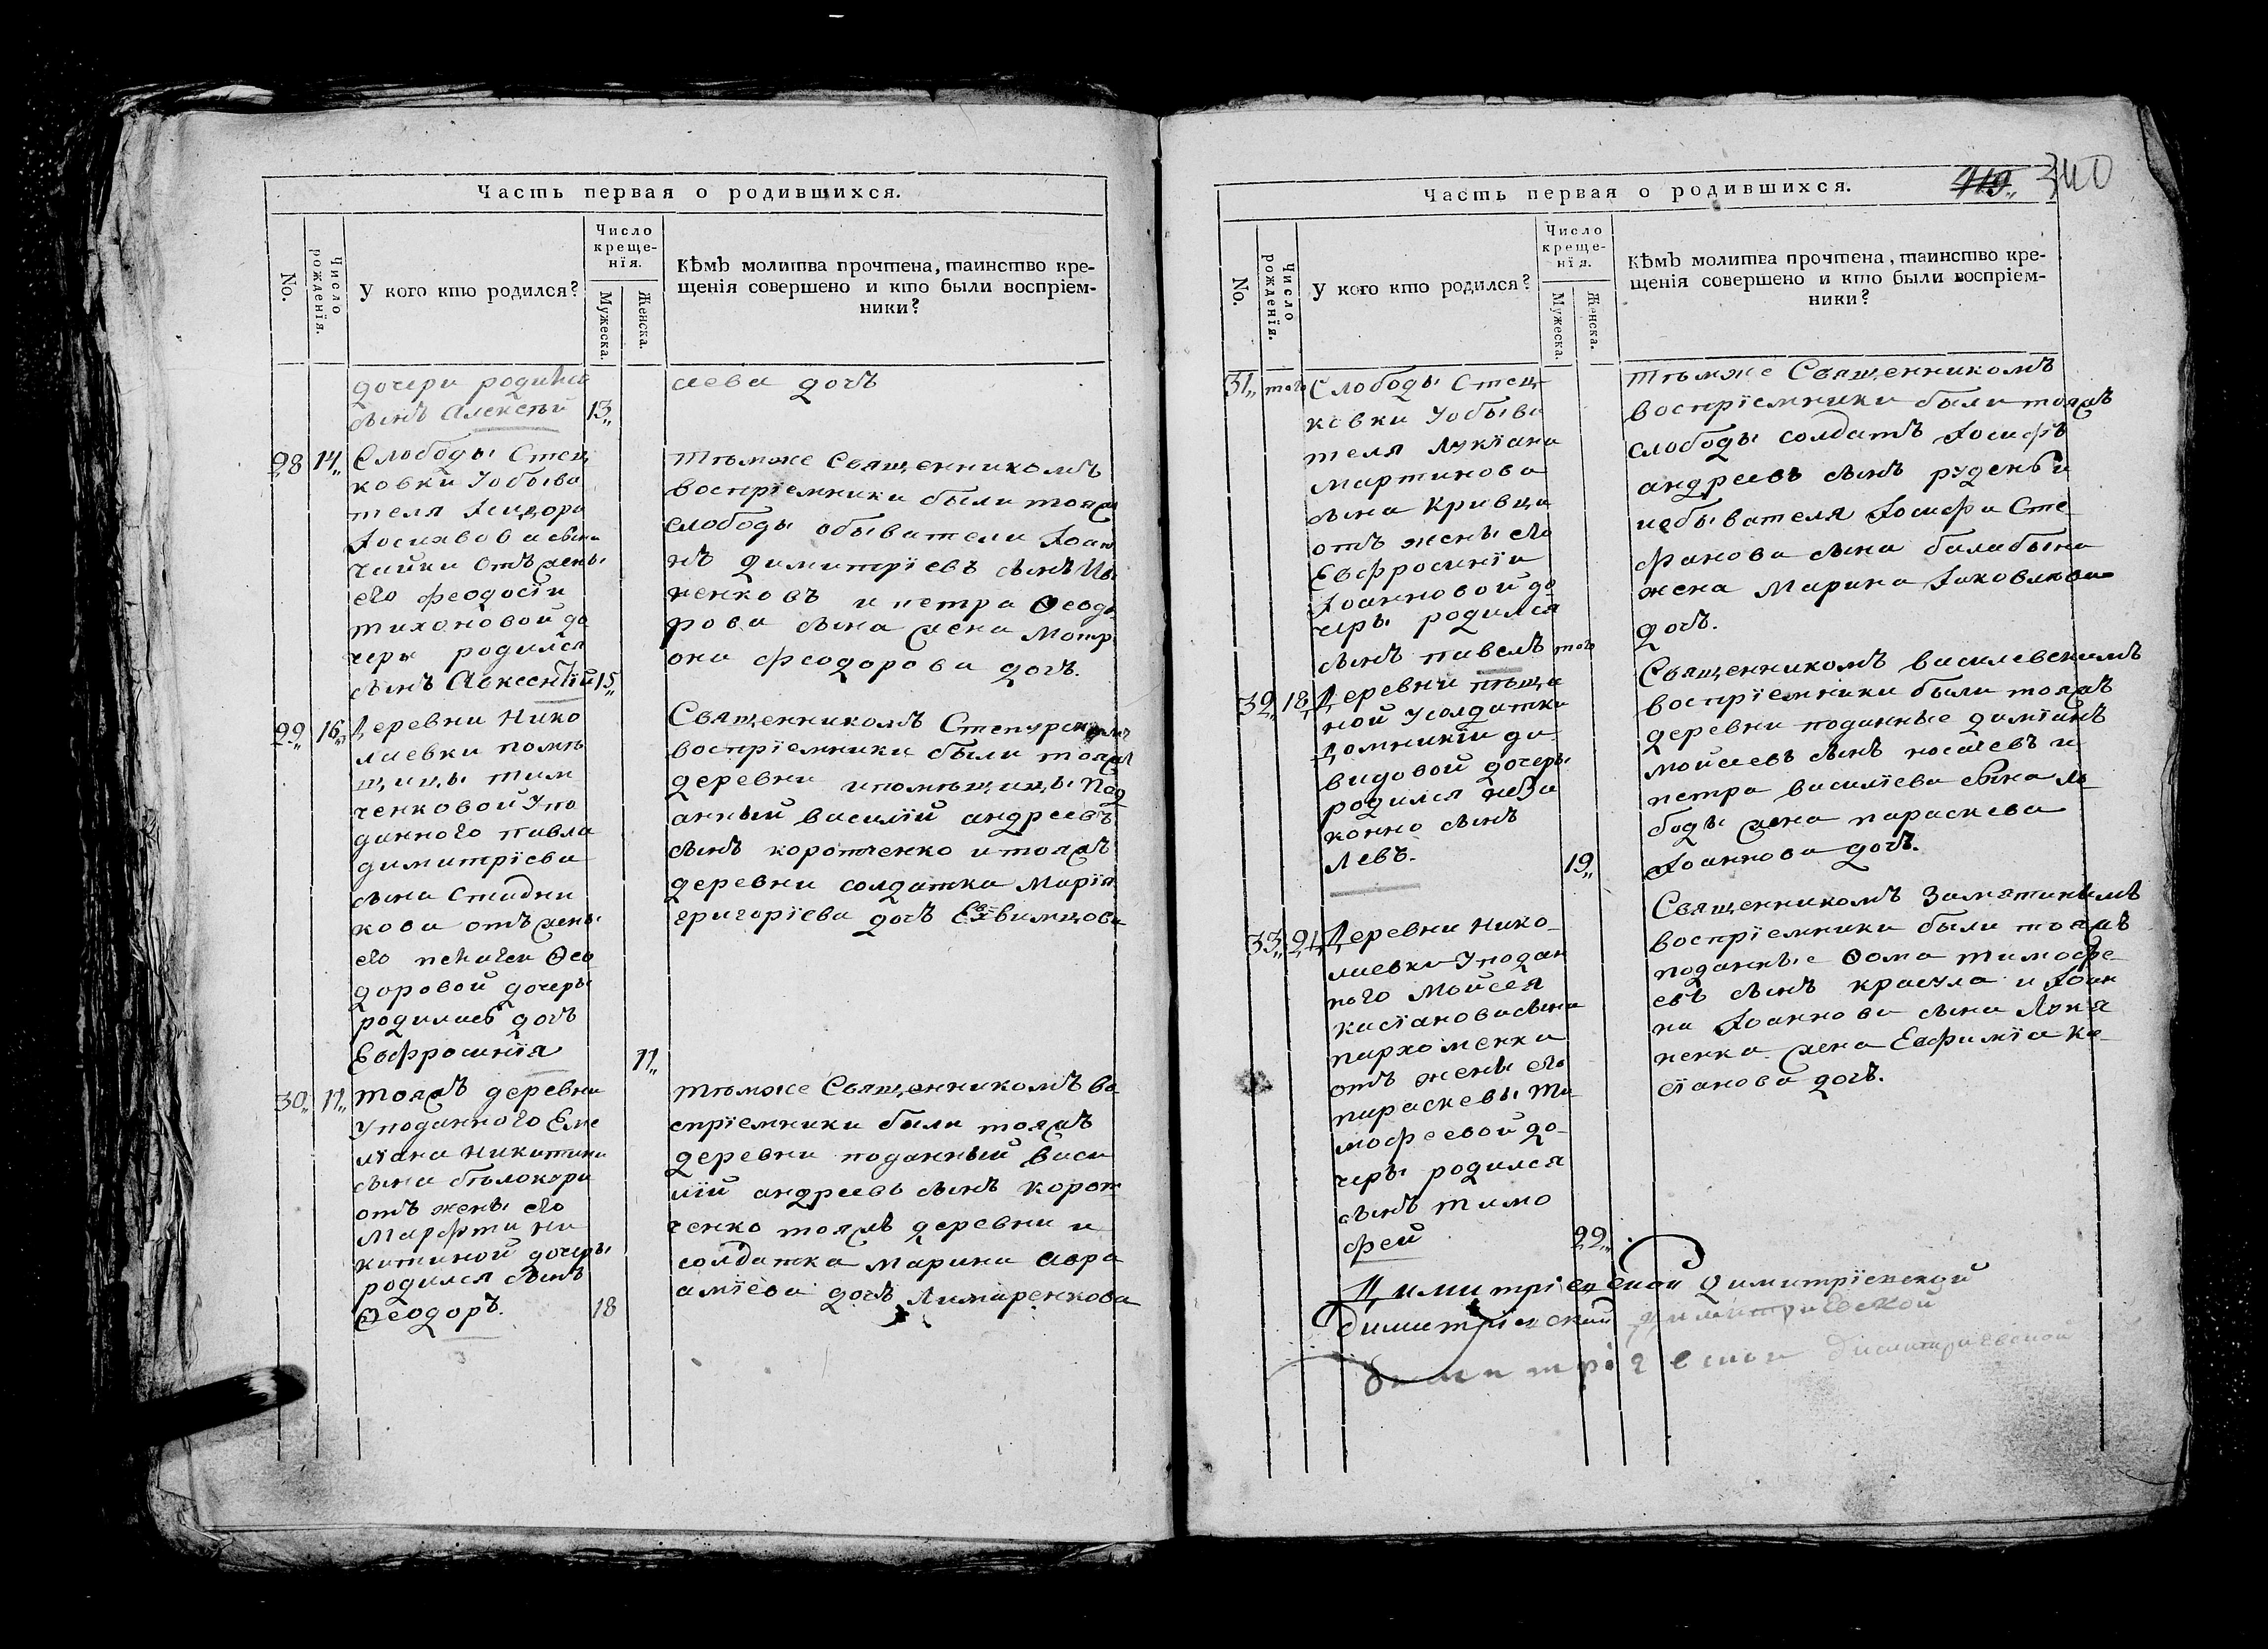 Часть первая о родившихся.
No.
Число рожденїя.
У кого кто родился?
Число
креще-
нїя.
Мужеска.
Женска.
Кѣмъ молитва прочтена, таинство кре-
щенїя совершено и кто были воспрїем-
ники?
дочери родился
сынъ Алексѣй 13„
аева дочъ
28 14„ Слободы Стец
ковки Уобыва
теля
сына
чайки отъ жены
его феодосїи
тихоновой до
чери родился
сынъ Авксентїй 15„
тѣмже Священникомъ
воспрїемники были тояжъ
слободы обыватели Іоан
нъ димитрїевъ сынъ
ненковъ и петра Ѳеодо
рова сына жена Матр
она феодорова дочъ.
29„ 16„ Деревни Нико
лаевки помѣ
щицы Тим
ченковой Упо
данного павла
димитрїева
сына
кова отъ жены
его Ѳео
доровой дочеры
родилась дочъ
Евфросинїя 17„
Священникомъ
воспрїемники были тояжъ
деревни ипомѣщицы Под
анный василїй андреевъ
сынъ коротченко итояжъ
деревни солдатка Марїя
григорїева дочъ
30„ 17„ тояжъ деревни
Уподанного Еме
лїана Никитина
сына бѣлокура
отъ жены его
Марфы ни
китиной дочеры
родился сынъ
Ѳеодоръ. 18
тѣмже Священникомъ во
спрїемники были тояжъ
деревни поданный васи
лїй андреевъ сынъ Корот
ченко тояжъ деревни и
солдатка Марина Авра
амїева дочъ Лимаренкова
Часть первая о родившихся.
340
No.
Число рожденїя.
У кого кто родился?
Число
креще-
нїя.
Мужеска.
Женска.
Кѣмъ молитва прочтена, таинство кре-
щенїя совершено и кто были воспрїем-
ники?
31„ того Слободы Стец
ковки Уобыва
теля Лукїана
мартинова
сына Кривца
отъ жены его
Евфросинїи
Іоанновой до
черы родился
сынъ павелъ того
тѣмже Священникомъ
воспрїемники были тояжъ
слободы солдатъ Іосифъ
андреевъ сынъ рудень и
иобывателя Іосифа Сте
фанова сына балабына
жена Марина Іаковлева
дочъ.
32„ 18„ Деревни пѣща
ной Усолдатки
Домникїи да
видовой дочеры
родился неза
конно сынъ
Левъ. 19„
Священникомъ василевскимъ
воспрїемники были тояжъ
деревни поданные дамїанъ
мойсеевъ сынъ носачевъ и
петра василїева сына ле
беды жена параскева
Іоаннова дочъ.
33„ 21„ Деревни Нико
лаевки Уподан
ного Мойсея
касїанова сына
пархоменка
отъ жены его
параскевы ти
мофеевой до
черы родился
сынъ тимо
фей 22„
Священникомъ Замятинымъ
воспрїемники были тояжъ
поданные Ѳома тимофе
евъ сынъ красула и Іоан
на Іоаннова сына Лукя
ненка жена Евфимїа Ка
сїанова дочъ.
Димитрїевской димитрїевской
димитрїевской димитриевской
димитрїевской димитриевской